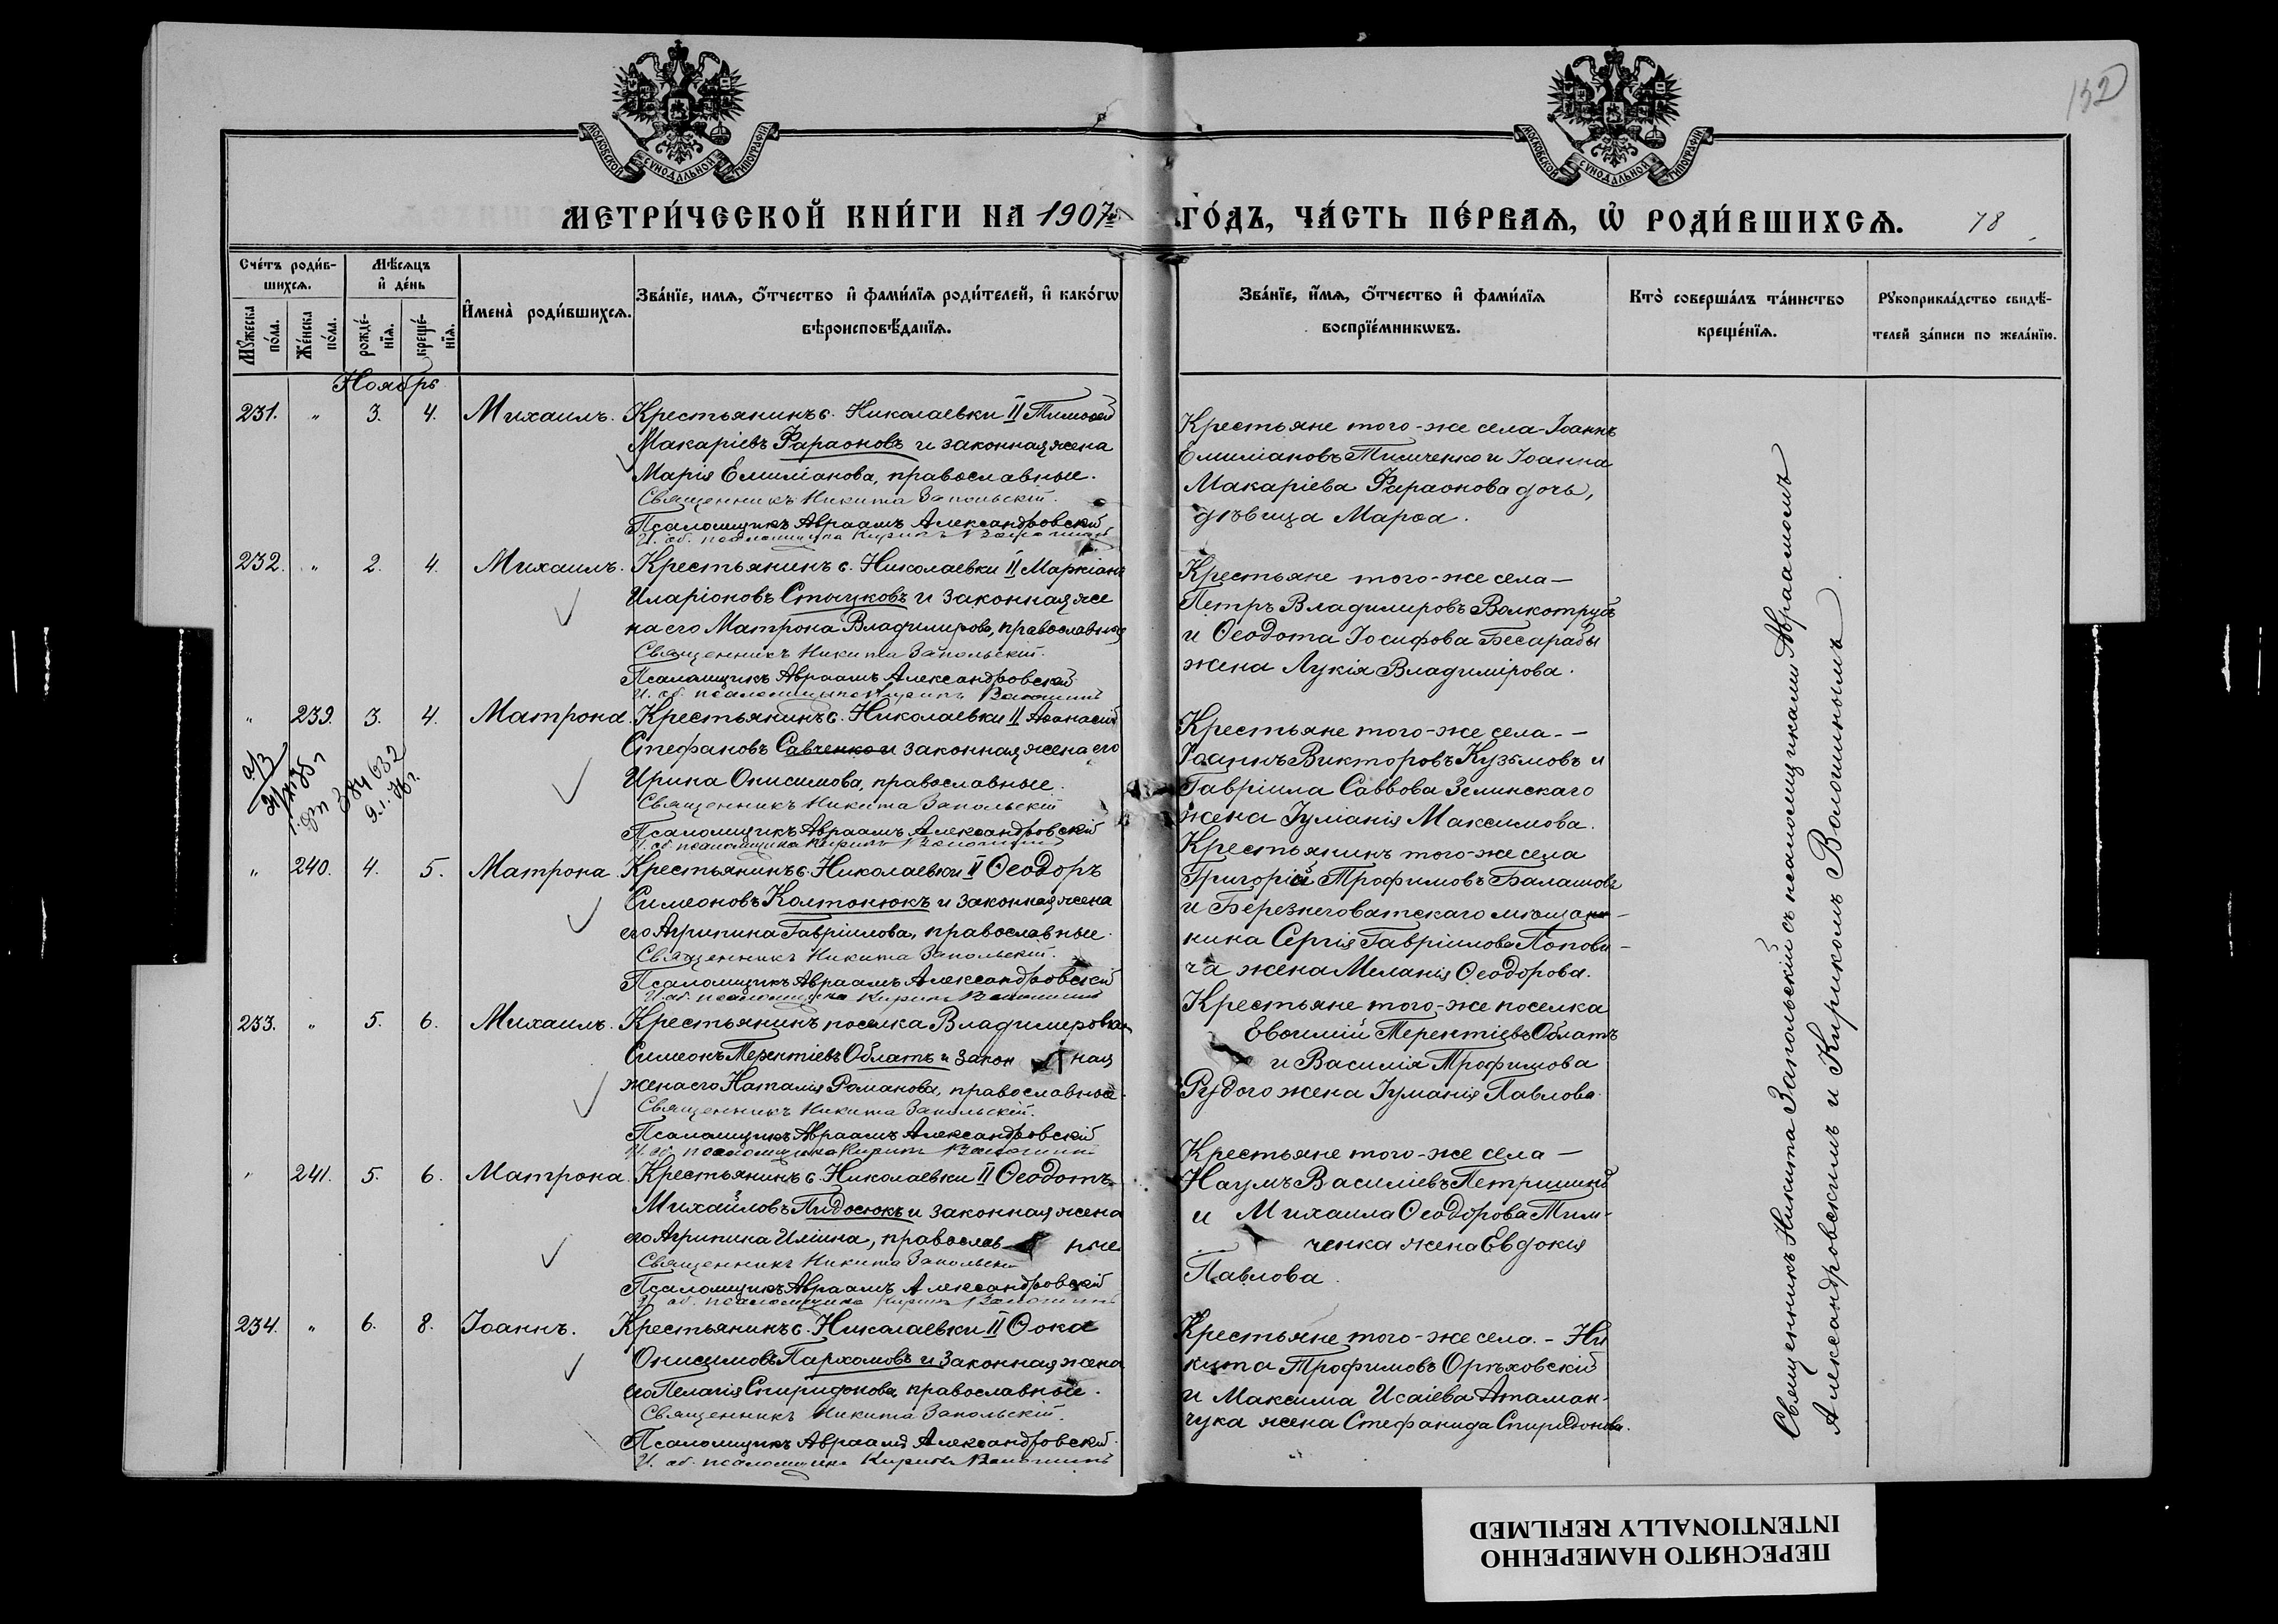 152
МОСКОВСКОЙ СУНОДАЛЬНОЙ ТИПОГРАФІИ
МОСКОВСКОЙ СУНОДАЛЬНОЙ ТИПОГРАФІИ
МЕТРИ́ЧЕСКОЙ КНИ́ГИ НА 1907й ГО́ДЪ, ЧА́СТЬ ПЕ́РВАѦ, Ѡ҆ РОДИ́ВШИХСѦ. 78
Сче́тъ роди́в-
шихсѧ.
Мꙋ́жеска по́ла.
Же́нска по́ла.
Мѣ́сѧцъ
и҆ де́нь
рожде́-
нїѧ.
креще́-
нїѧ.
И҆мена̀ роди́вшихсѧ.
Зва́нїе, имѧ, ѻ҆́тчество и҆ фами́лїѧ роди́телей, и҆ како́гѡ
вѣроисповѣ́данїѧ.
Зва́нїе, и҆́мѧ, ѻ҆́тчество и҆ фами́лїѧ
воспрїе́мникѡвъ.
Кто̀ соверша́лъ та́инство
креще́нїѧ.
Рꙋкоприкла́дство свидѣ́-
телей за́писи по жела́нїю.
Ноябрь
231. " 3. 4. Михаилъ. Крестьянинъ с. Николаевки II Тимоѳей
Макаріевъ Фараоновъ и законная жена
Марія Емиліанова, православные.
Священникъ Никита Запольскій.
Псаломщикъ Авраамъ Александровскій
И. об. псаломщика Кирикъ Волошинъ
Крестьяне того-же села-Іоаннъ
Емиліановъ Тимченко и Іоанна
Макаріева Фараонова дочь,
дѣвица Марѳа.
232. " 2. 4. Михаилъ. Крестьянинъ с. Николаевки II Маркіанъ
Иларіоновъ Стыцковъ и законная же
на его Матрона Владимирова, православные
Священникъ Никита Запольскій.
Псаломщикъ Авраамъ Александровскій
И. об. псаломщика Кирикъ Волошинъ
Крестьяне того-же села-
Петръ Владимировъ Волкотрубъ
и Ѳеодота Іосифова Бесарабы
жена Лукія Владимірова.
" 239. 3. 4. Матрона. Крестьянинъ с. Николаевки II Аѳанасій
Стефановъ Савченко и законная жена его
Ирина Онисимова, православные.
Священникъ Никита Запольскій
Псаломщикъ Авраамъ Александровскій
И. об. псаломщика Кирикъ Волошинъ
384632
Крестьяне того-же села.-
Іоаннъ Викторовъ Кузьмовъ и
Гавріила Саввова Зелинскаго
жена Іуліанія Максимова.
" 240. 4. 5. Матрона. Крестьянинъ с. Николаевки II Ѳеодоръ
Симеоновъ Колтонюкъ и законная жена
его Агрипина Гавріилова, православные.
Священникъ Никита Запольскій.
Псаломщикъ Авраамъ Александровскій
И. об. псаломщика Кирикъ Волошинъ
Крестьянинъ того-же села
Григорій Трофимовъ Балашовъ
и Березнеговатскаго мѣщани-
нина Сергія Гавріилова Попови-
ча жена Меланія Ѳеодорова.
233. " 5. 6. Михаилъ. Крестьянинъ поселка Владимировки
Симеонъ Терентіевъ Облатъ и закон ная
жена его Наталія Романова, православные.
Священникъ Никита Запольскій.
Псаломщикъ Авраамъ Александровскій
И. об. псаломщика Кирикъ Волошинъ
Крестьяне того-же поселка
Евѳимій Терентіевъ Облатъ
и Василія Трофимова
Рудого жена Іуліанія Павлова.
" 241. 5. 6. Матрона. Крестьянинъ с. Николаевки II Ѳеодотъ
Михайловъ Пидосюкъ и законная жена
его Агрипина Иліина, православ ные
Священникъ Никита Запольскій
Псаломщикъ Авраамъ Александровскій
И. об. псаломщика Кирикъ Волошинъ
Крестьяне того-же села-
Наумъ Василіевъ Петришинъ
и Михаила Ѳеодорова Тим-
ченка жена Евдокія
Павлова.
234. " 6. 8. Іоаннъ. Крестьянинъ с. Николаевки II Ѳока
Онисимовъ Пархомовъ и законная жена
его Пелагія Спиридонова, православные.
Священникъ Никита Запольскій.
Псаломщикъ Авраамъ Александровскій
И. об. псаломщика Кирикъ Волошинъ
Крестьяне того-же села.- Ни
кита Трофимовъ Орѣховскій
и Максима Исаіева Атаман-
чука жена Стефанида Спиридонова.
Священникъ Никита Запольскій съ псаломщиками Авраамомъ
Александровскимъ и Кирикомъ Волошинымъ
ПЕРЕСНЯТО НАМЕРЕННО
INTENTIONALLY REFILMED